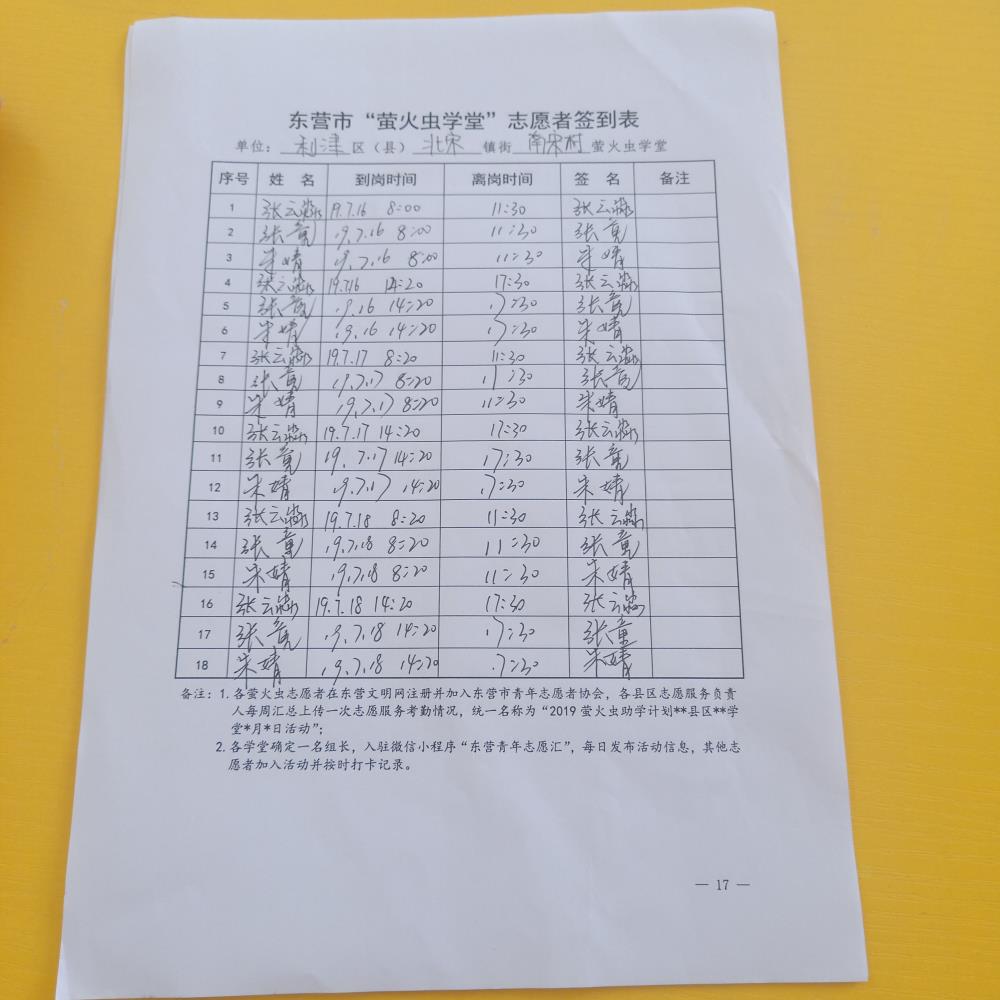 东营市“萤火虫学堂”志愿者签到表
单位： 利津 区（县） 北宋 镇街 南宋村 萤火虫学堂
序号 姓 名 到岗时间 离岗时间 签 名 备注
1 张云淼 19.7.16 8:00 11:30 张云淼
2 张竟 19.7.16 8:00 11:30 张竟
3 朱婧 19.7.16 8:00 11:30 朱婧
4 张云淼 19.7.16 14:20 17:30 张云淼
5 张竟 19.16 14:20 17:30 张竟
6 朱婧 19.16 14:20 17:30 朱婧
7 张云淼 19.7.17 8:20 11:30 张云淼
8 张竟 19.7.17 8:20 11:30 张竟
9 朱婧 19.7.17 8:20 11:30 朱婧
10 张云淼 19.7.17 14:20 17:30 张云淼
11 张竟 19.7.17 14:20 17:30 张竟
12 朱婧 19.7.17 14:20 17:30 朱婧
13 张云淼 19.7.18 8:20 11:30 张云淼
14 张竟 19.7.18 8:20 11:30 张竟
15 朱婧 19.7.18 8:20 11:30 朱婧
16 张云淼 19.7.18 14:20 17:30 张云淼
17 张竟 19.7.18 14:20 17:30 张童
18 朱婧 19.7.18 14:20 17:30 朱婧
备注：1. 各萤火虫志愿者在东营文明网注册并加入东营市青年志愿者协会，各县区志愿服务负责
人每周汇总上传一次志愿服务考勤情况，统一名称为“2019 萤火虫助学计划**县区**学
堂*月*日活动”；
2. 各学堂确定一名组长，入驻微信小程序“东营青年志愿汇”，每日发布活动信息，其他志
愿者加入活动并按时打卡记录。
— 17 —